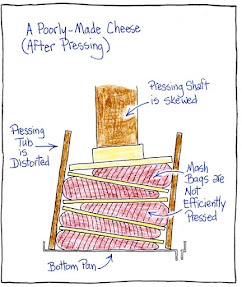 A Poorly-Made Cheese
(After Pressing)
Pressing Shaft
is skewed
Pressing
Tub
is
Distorted
Mash
Bags are
Not
Efficiently
Pressed
Bottom Pan